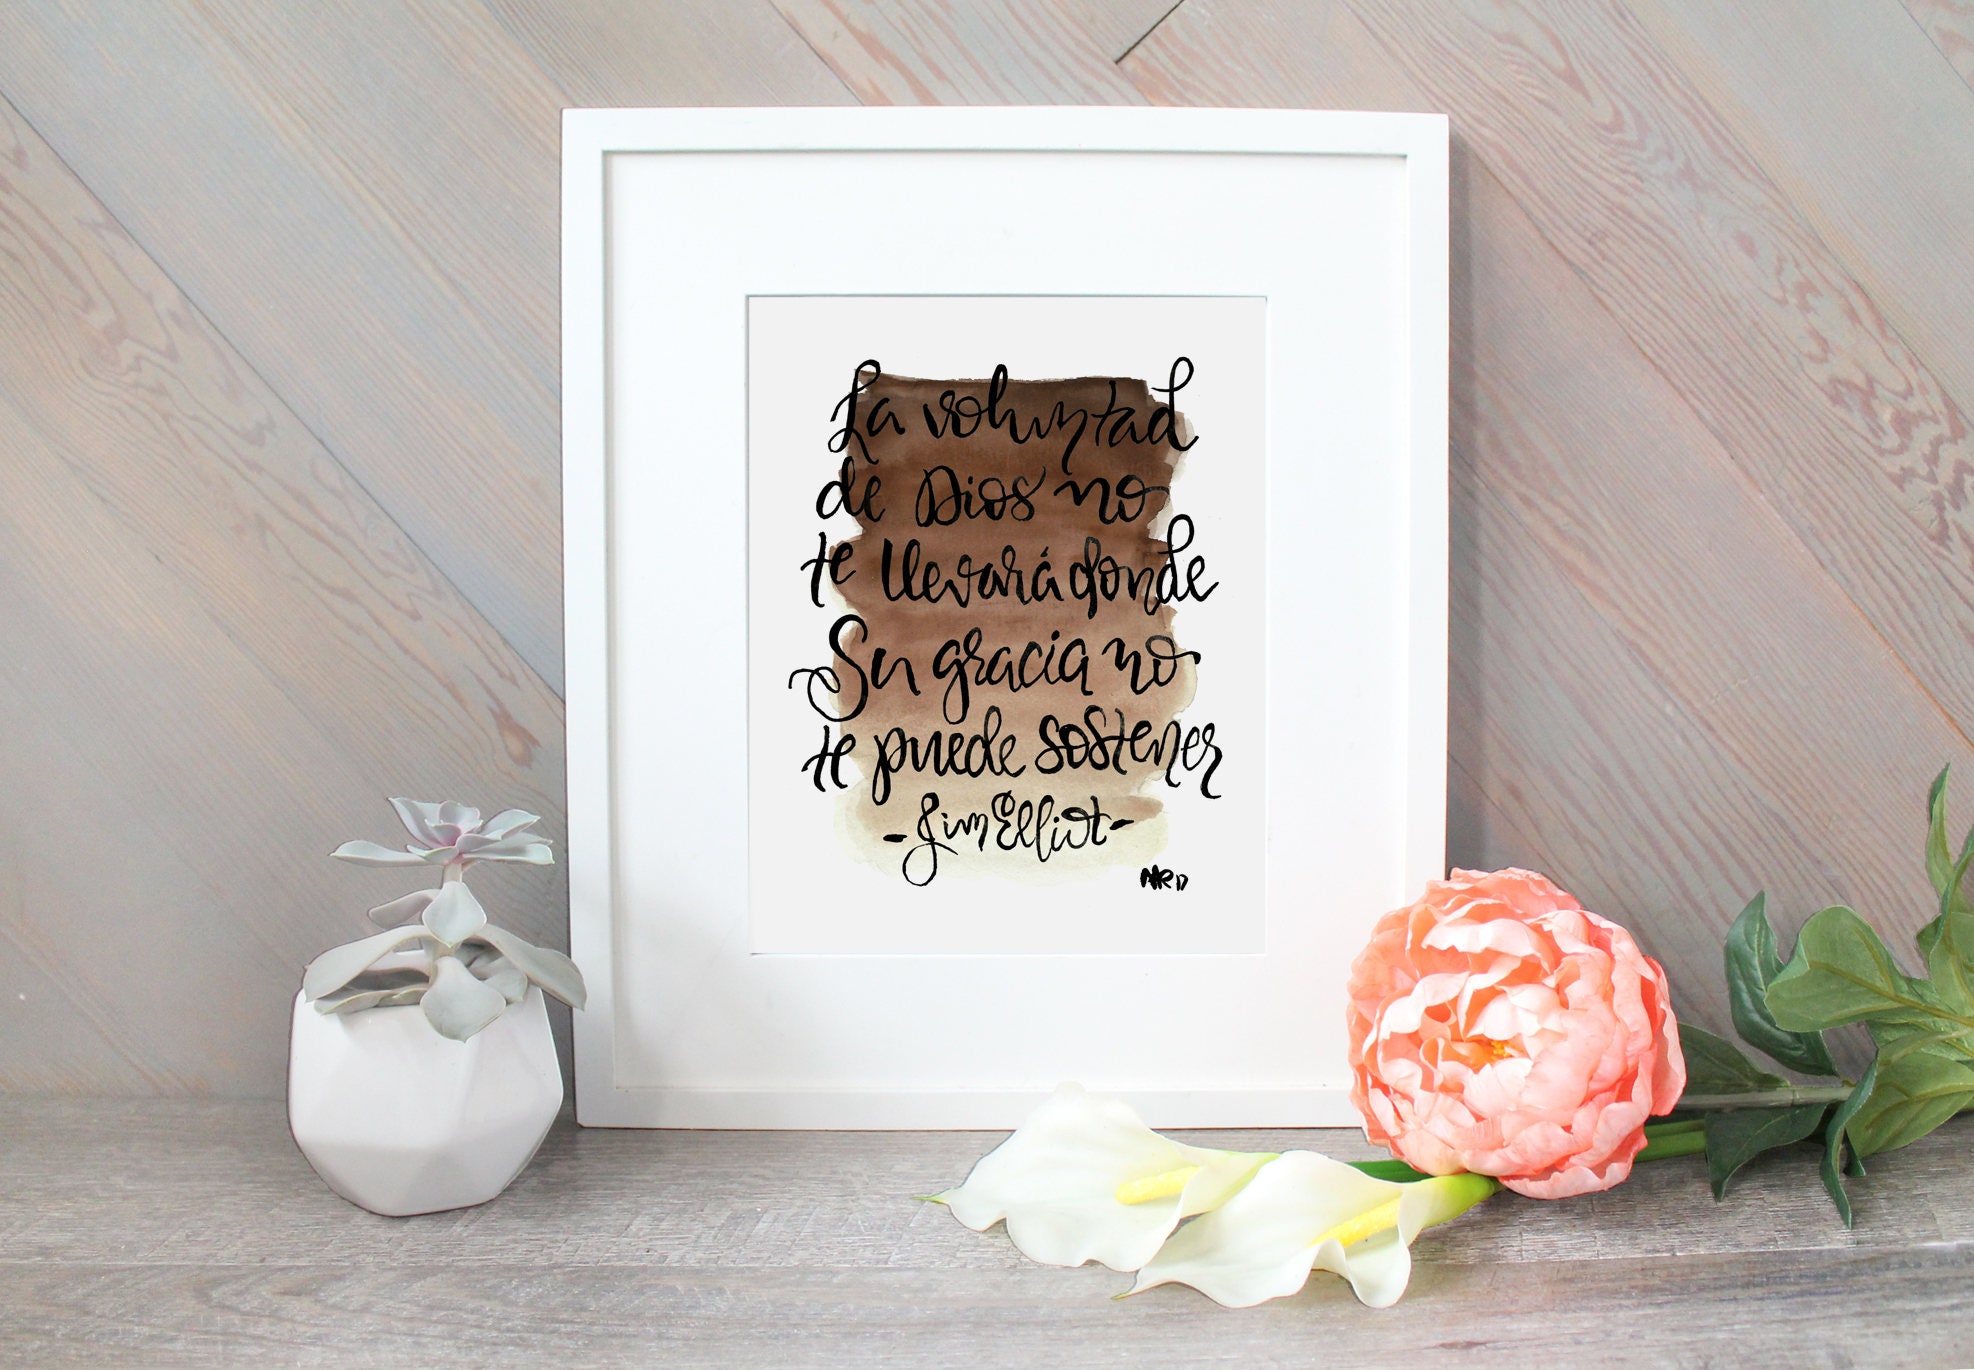 La voluntad
de Dios no
te llevará donde
Su gracia no
te puede sostener
- Jim Elliot -